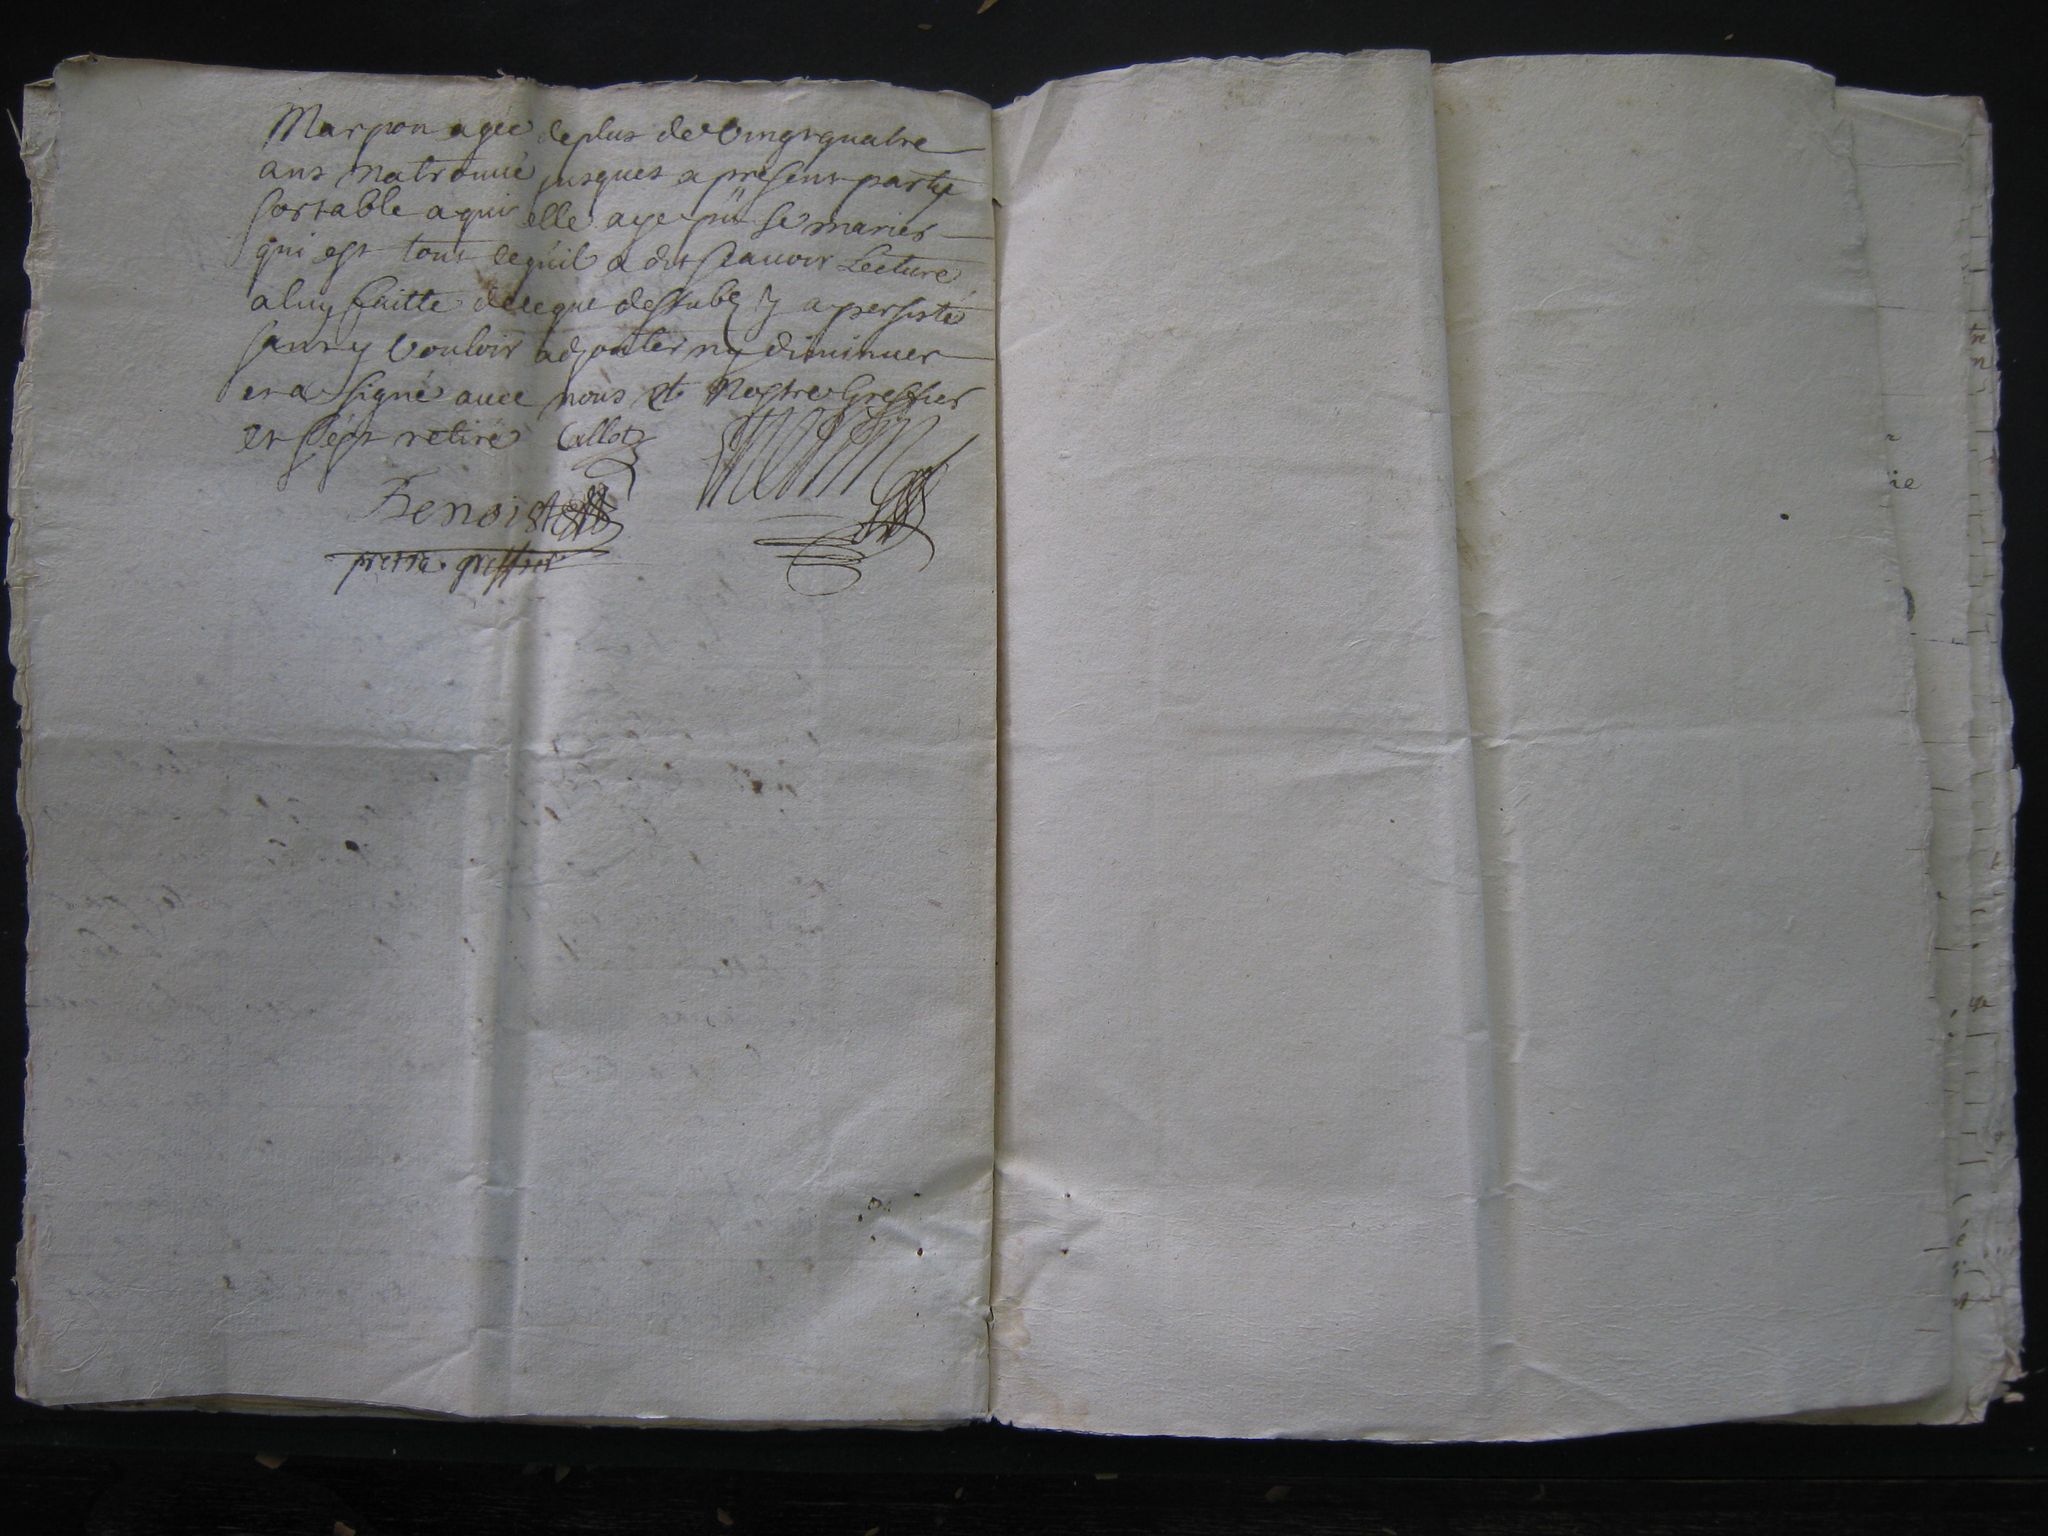 Marpon agée de plus de Vingt quatre
ans na trouué jusques a present partye
sortable a qui elle aye pû se marier
qui est tout ce quil a dit scauoir Lecture
a luy faitte de ce que dessubz y a persisté
sans y Vouloir adjouter ny diminuer
et a signé auec nous et Nostre Greffier
et s'est retiré Callot
Benoist
prestre greffier